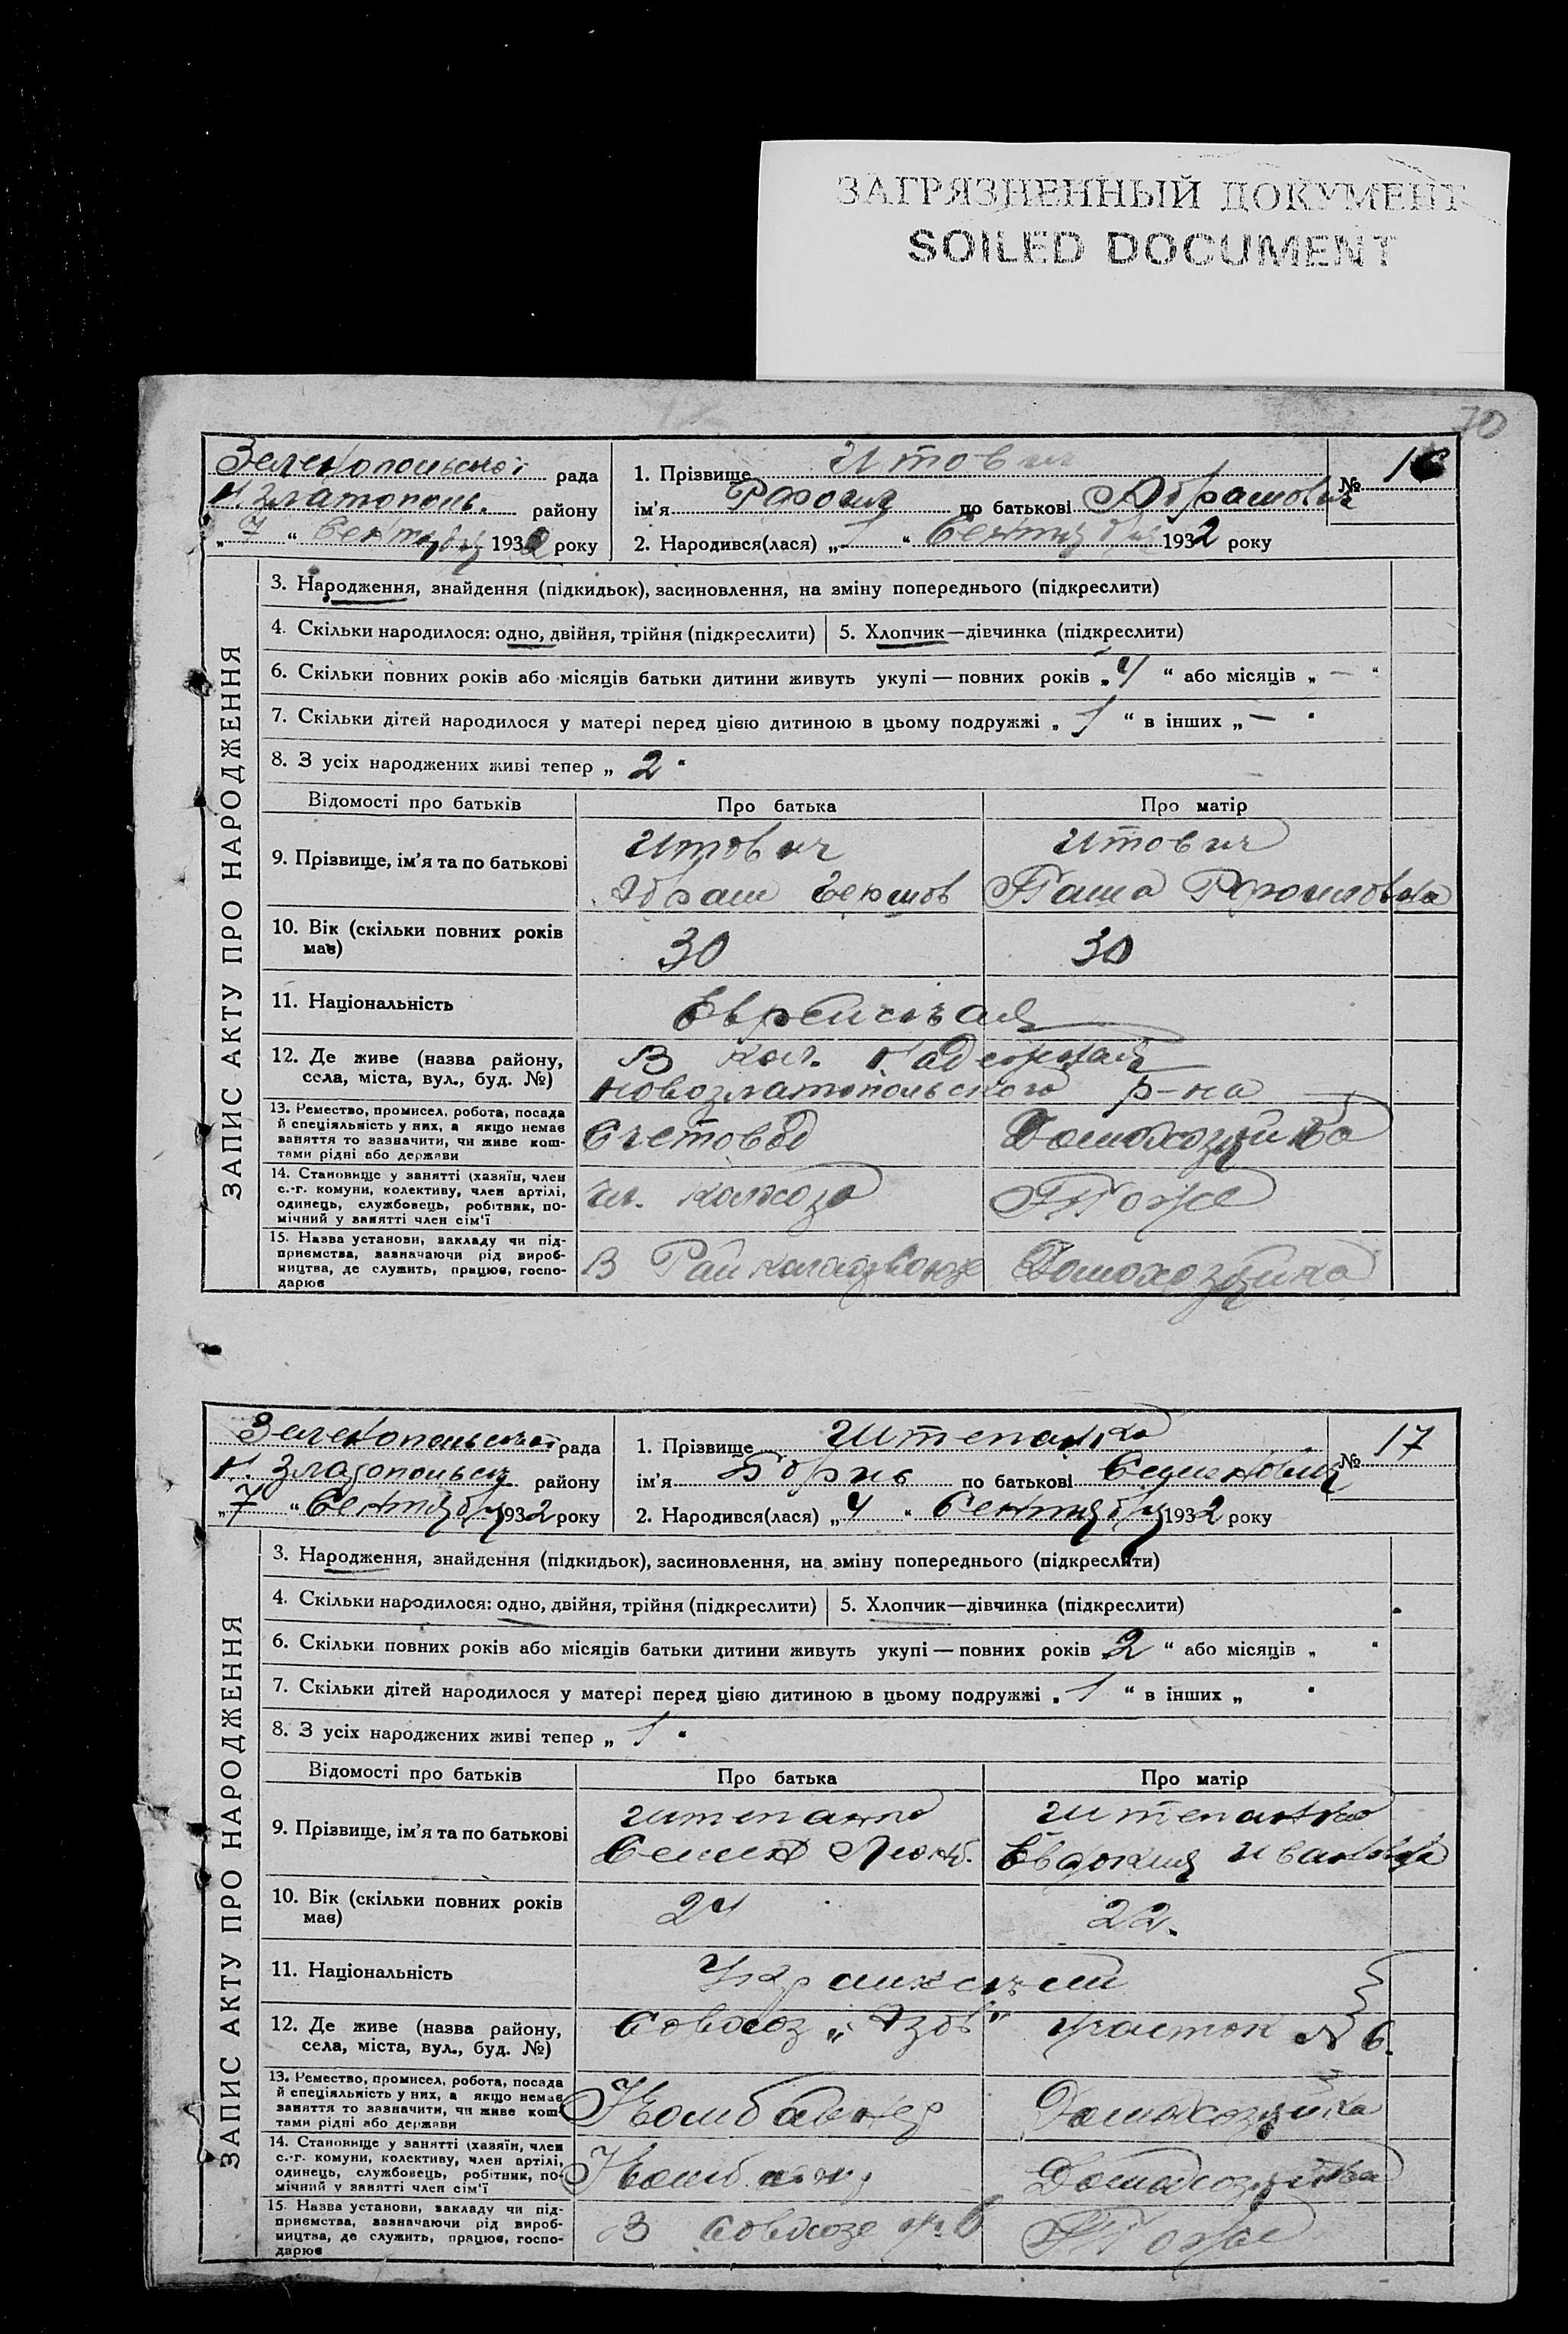 ЗАГРЯЗНЕННЫЙ ДОКУМЕНТ
SOILED DOCUMENT
70
Зеленопольської рада
Н. Златополь. району
„7“ Сентября 1932 року
1. Прізвище Итович
ім'я по батькові Абрамович
№ 16
2. Народився(лася) „1“ Сентября 1932 року
ЗАПИС АКТУ ПРО НАРОДЖЕННЯ
3. Народження, знайдення (підкидьок), засиновлення, на зміну попереднього (підкреслити)
4. Скільки народилося: одно, двійня, трійня (підкреслити) 5. Хлопчик—дівчинка (підкреслити)
6. Скільки повних років або місяців батьки дитини живуть укупі — повних років „4“ або місяців „—“
7. Скільки дітей народилося у матері перед цією дитиною в цьому подружжі „1“ в інших „—“
8. З усіх народжених живі тепер „2“
Відомості про батьків Про батька Про матір
9. Прізвище, ім'я та по батькові
Итович Итович
Абрам
10. Вік (скільки повних років має) 30 30
11. Національність Еврейская
12. Де живе (назва району, села, міста, вул., буд. №)
В кол. Надежная
Новозлатопольского р-на
13. Ремество, промисел, робота, посада
й спеціяльність у них, а якщо немає
заняття то зазначити, чи живе кош-
тами рідні або держави
Счетовод Домохозяйка
14. Становище у занятті (хазяїн, член
с.-г. комуни, колективу, член артілі,
одинець, службовець, робітник, по-
мічний у занятті член сім'ї
чл. колхоза Тоже
15. Назва установи, закладу чи під-
приємства, зазначаючи рід вироб-
ництва, де служить, працює, госпо-
дарює
В Райколхозсоюзе Домохозяйка
Зеленопольской рада
Н. Златопольск району
„7“ Сентября 1932 року
1. Прізвище Штепанко
ім'я Борис по батькові Семенович
№ 17
2. Народився(лася) „4“ Сентября 1932 року
ЗАПИС АКТУ ПРО НАРОДЖЕННЯ
3. Народження, знайдення (підкидьок), засиновлення, на зміну попереднього (підкреслити)
4. Скільки народилося: одно, двійня, трійня (підкреслити) 5. Хлопчик—дівчинка (підкреслити)
6. Скільки повних років або місяців батьки дитини живуть укупі — повних років „2“ або місяців „ “
7. Скільки дітей народилося у матері перед цією дитиною в цьому подружжі „1“ в інших „ “
8. З усіх народжених живі тепер „1“
Відомості про батьків Про батька Про матір
9. Прізвище, ім'я та по батькові
Штепанко Штепанко
Семен Евдокия Ивановна
10. Вік (скільки повних років має) 24 22.
11. Національність Украинский
12. Де живе (назва району, села, міста, вул., буд. №)
Совхоз „Азов“ участок № 6.
13. Ремество, промисел, робота, посада
й спеціяльність у них, а якщо немає
заняття то зазначити, чи живе кош-
тами рідні або держави
Комбайнер Домохозяйка
14. Становище у занятті (хазяїн, член
с.-г. комуни, колективу, член артілі,
одинець, службовець, робітник, по-
мічний у занятті член сім'ї
Комбайн. Домохозяйка
15. Назва установи, закладу чи під-
приємства, зазначаючи рід вироб-
ництва, де служить, працює, госпо-
дарює
В совхозе 6 Тоже